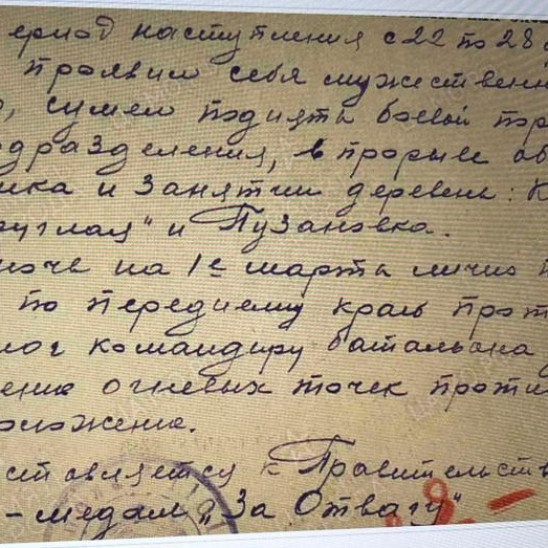 ериод наступления с 22 по 28 ф
проявил себя мужествен
о, сумел поднять боевой пор
одразделения, в прорыве об
ика и занятии деревень: К
руглая" и Пузановка.
ночь на 1е марта лично п
по переднему краю прот
мог командиру батальона у
ение огневых точек проти
оложение.
ставляется к Правительств
- медали „За Отвагу"